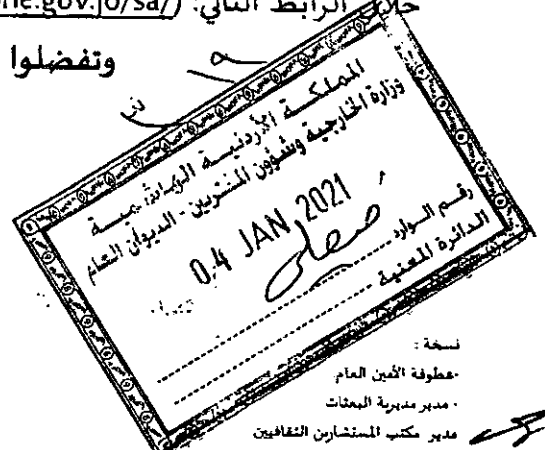 خلال الرابط التالي: (he.gov.jo/sa/
وتفضلوا
المملكة الأردنية الهاشمية
وزارة الخارجية وشؤون المغتربين - الديوان العام
04 JAN 2021
رقم الوارد
الدائرة المعنية
نسخة :
-عطوفة الأمين العام
- مدير مديرية البعثات
مدير مكتب المستشارين الثقافيين